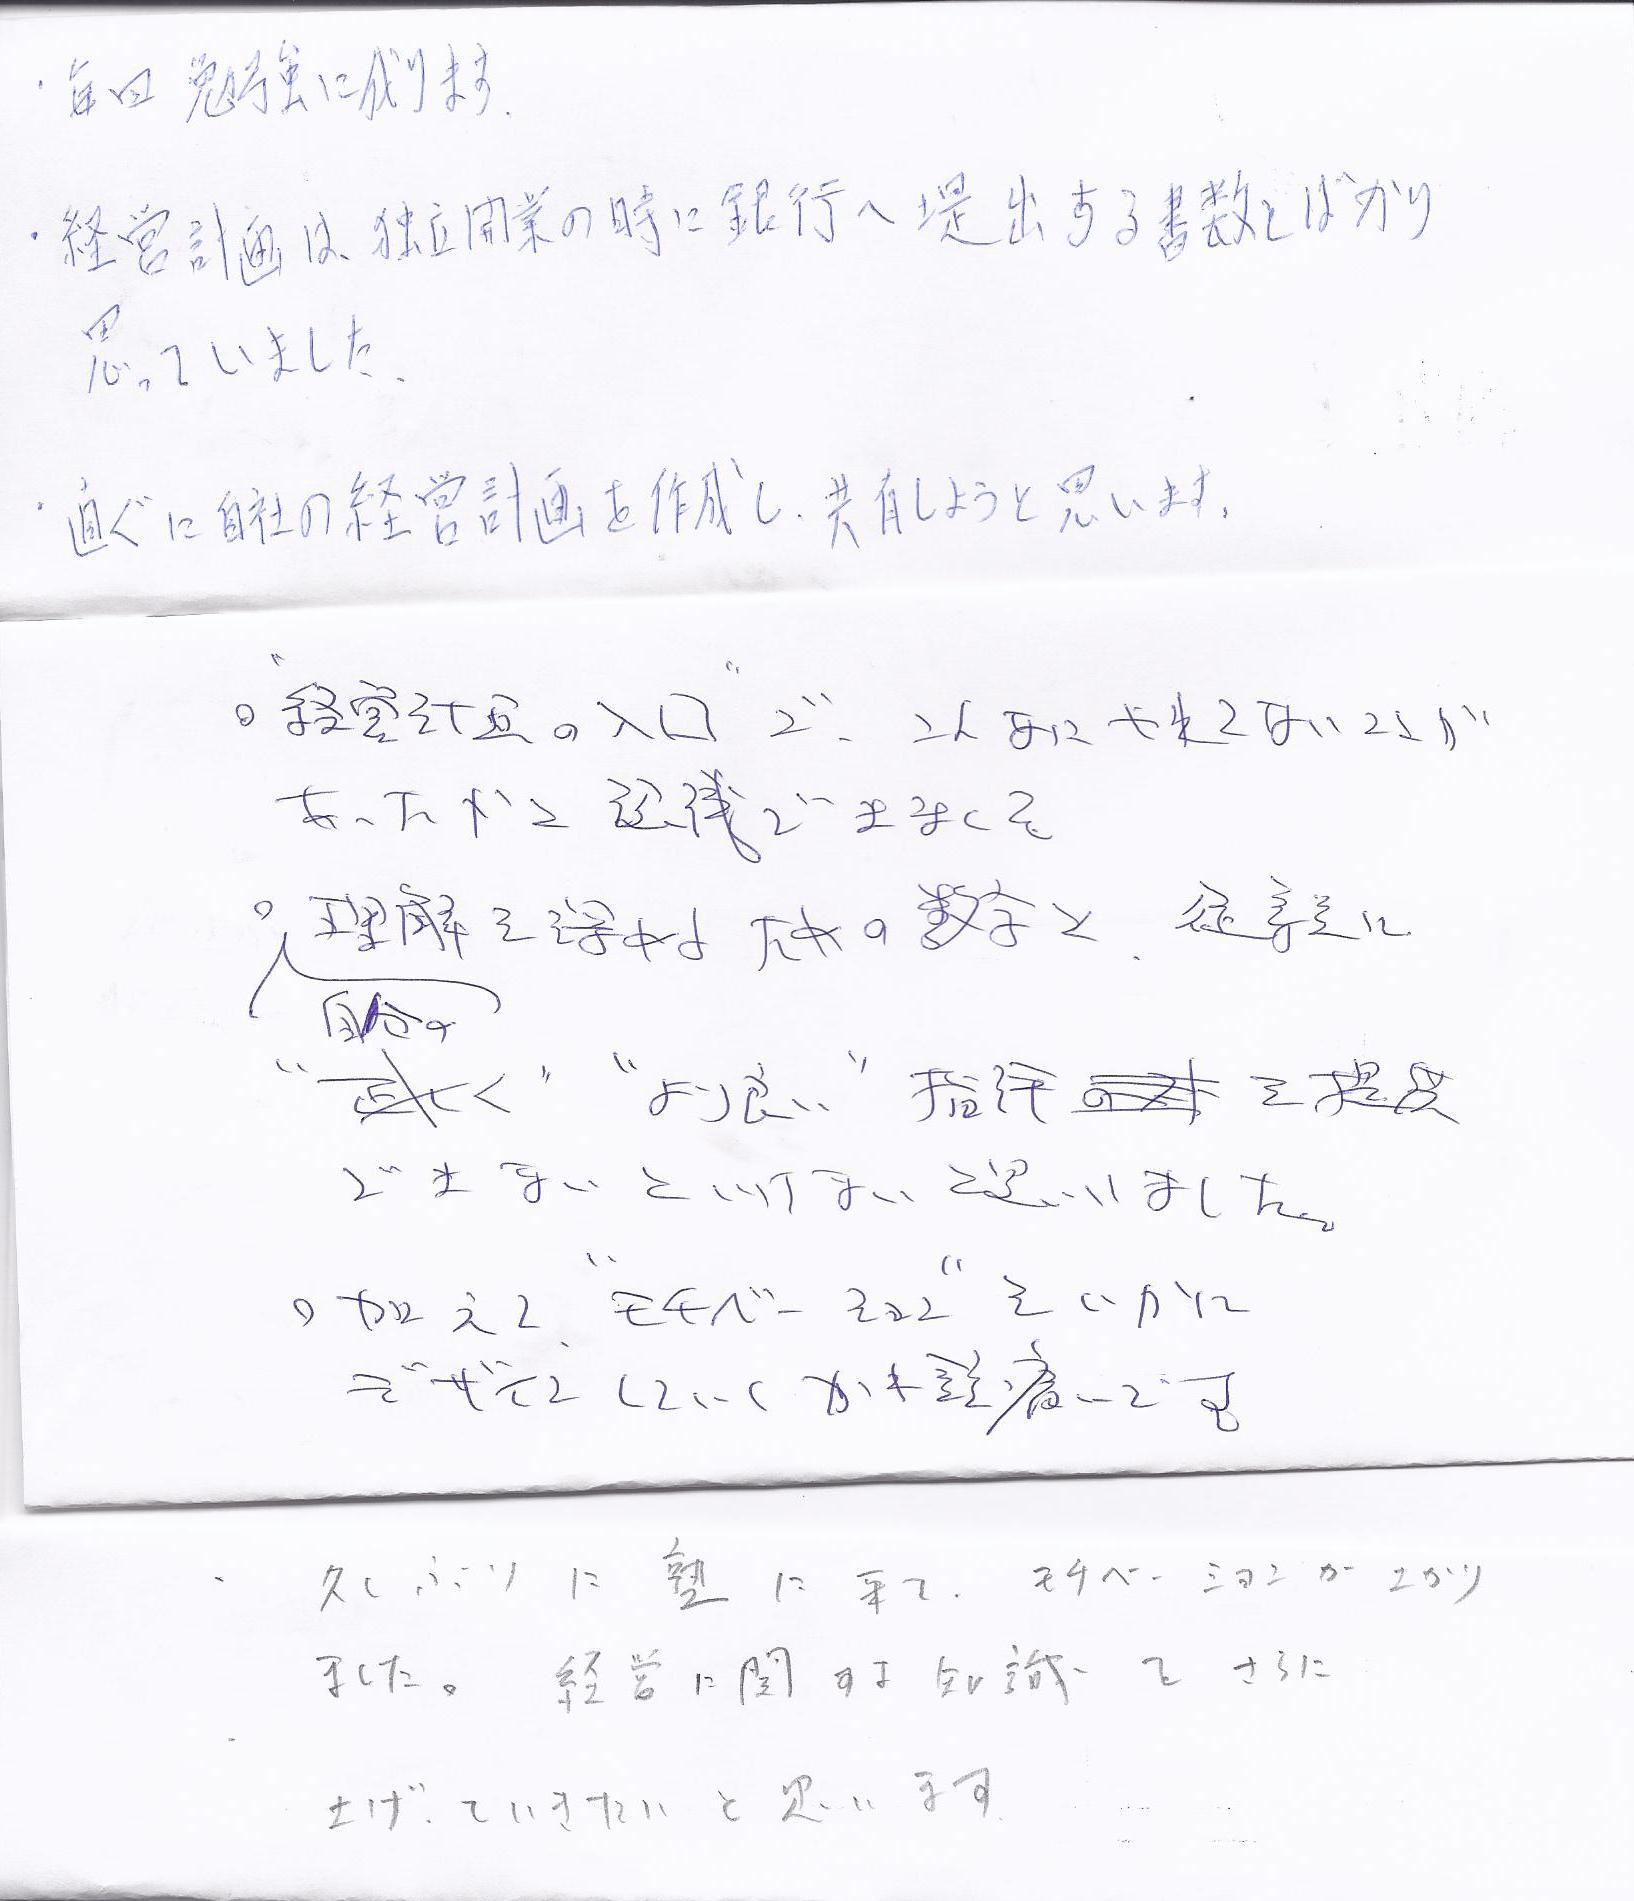 ・毎回勉強に成ります。
・経営計画は、独立開業の時に銀行へ堤出する書数とばかり
思っていました。
・直ぐに自社の経営計画を作成し、共有しようと思います。
○“経営計画の入口”で、こんなにやれてないことが
あったかと認識できまして
○理解を深めるための数字と、従業員に
自分の
“正しく” “より良い” 指標 を提案
できないといけないと思いました。
○加えて、“モチベーション”をいかに
デザインしていくかも課題です
・久しぶりに塾に来て、モチベーションが上がり
ました。経営に関する知識をさらに
上げていきたいと思います